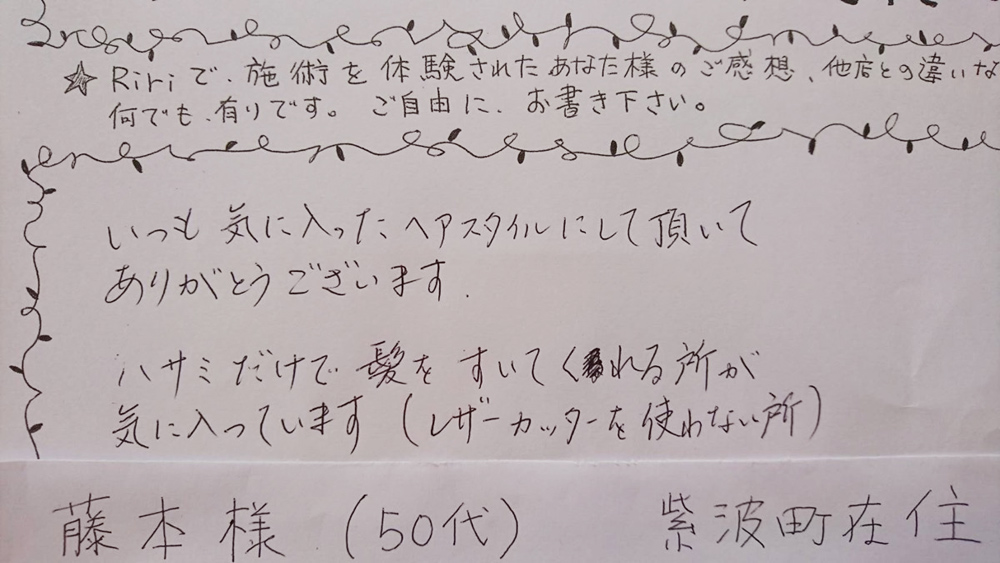 ☆ Ririで、施術を体験されたあなた様のご感想、他店との違いな
何でも、有りです。ご自由に、お書き下さい。
いつも気に入ったヘアスタイルにして頂いて
ありがとうございます。
ハサミだけで髪をすいてくれる所が
気に入っています(レザーカッターを使わない所)
藤本様(50代) 紫波町在住